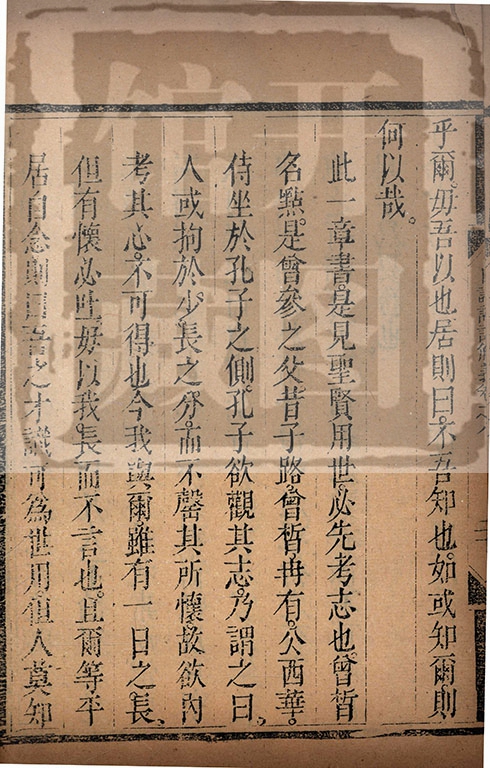 乎爾。毋吾以也居則曰。不吾知也。如或知爾。則
何以哉。
此一章書。是見聖賢用世。必先考志也。曾晳
名點。是曾參之父。昔子路。曾晳冉有。公西華。
侍坐於孔子之側。孔子欲觀其志。乃謂之曰。
人或拘於少長之分。而不罄其所懷。故欲內
考其心。不可得也今我與爾雖有一日之長。
但有懷必吐。毋以我長而不言也。且爾等平
居自念則曰吾之才識可為世用。但人莫知